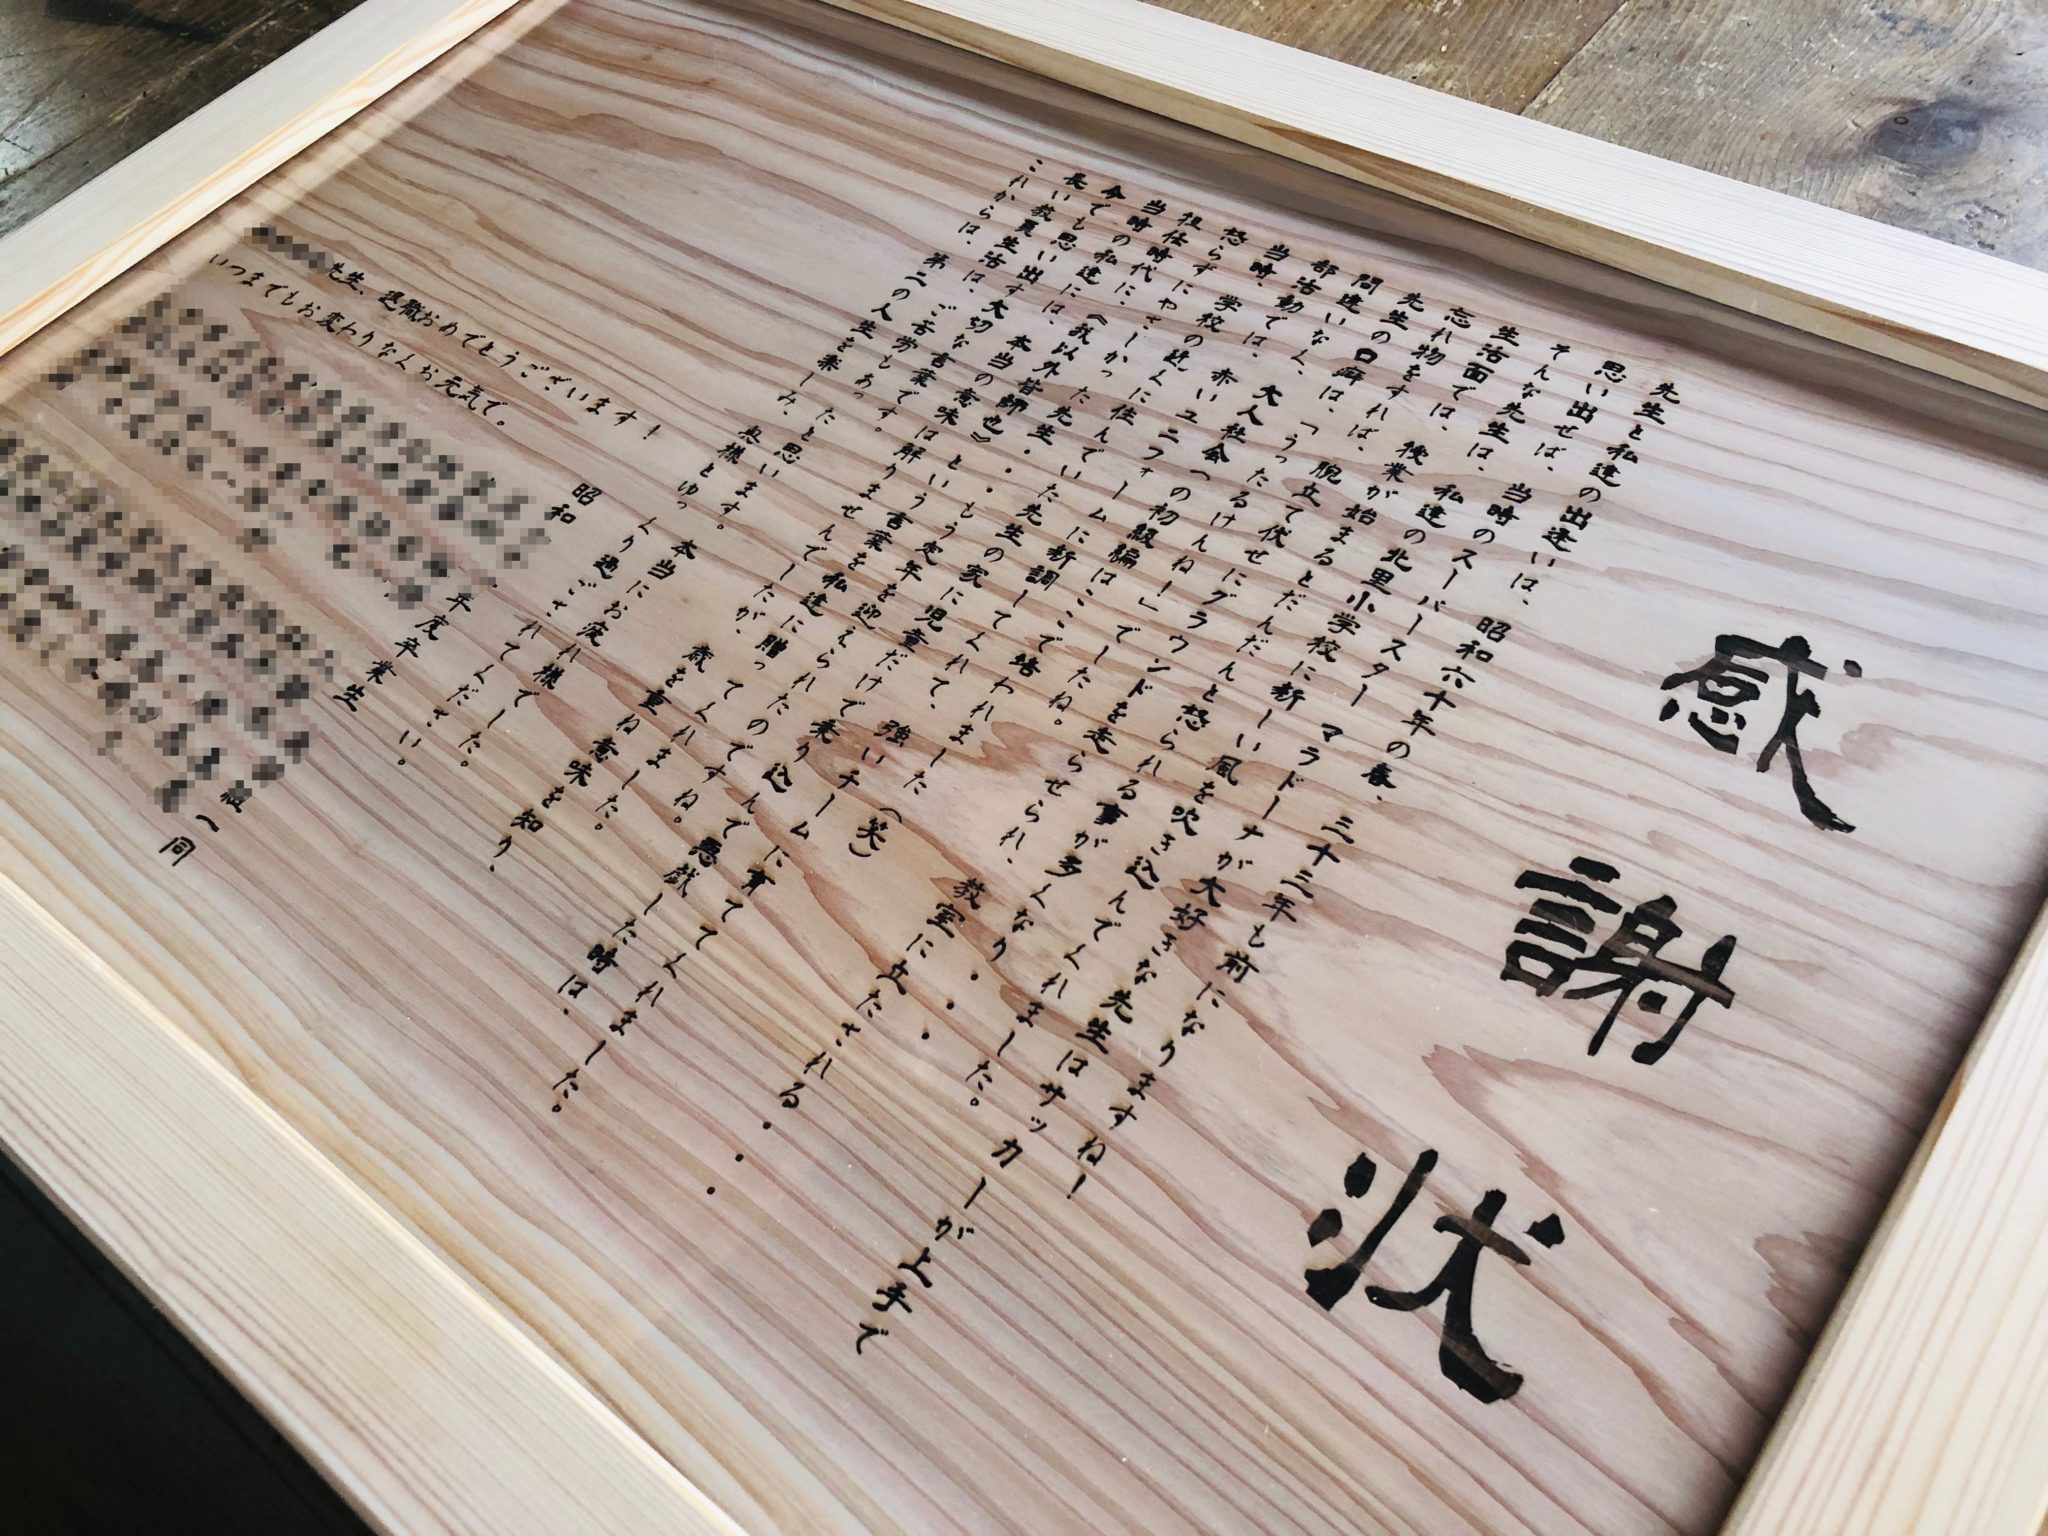 感謝状
先生と私達の出逢いは、昭和六十年の春、三十三年も前になりますね！
思い出せば、当時のスーパースター マラドーナが大好きな先生はサッカーが上手で
そんな先生は、私達の北里小学校に新しい風を吹き込んでくれました。
生活面では、授業が始まるとだんだんと恐られる事が多くなり・・・
忘れ物をすれば、腕立て伏せにグラウンドを走らせられ、教室に立たされる・・・
先生の口癖は、「うったるけんね！」でしたね。
間違いなく、大人社会への初級編はここで培われました（笑）
部活動では、赤いユニフォームに新調してくれて、強いチームに育ててくれました。
当時、学校の近くに住んでいた先生の家に児童だけで乗り込んで悪戯した時は、
怒らずにやさしかった先生・・・もう定年を迎えられたのですね。
担任時代に《我以外皆師也》という言葉を私達に贈ってくれました。
当時の私達には、本当の意味は解りませんでしたが、歳を重ね意味を知り、
今でも思い出す大切な言葉です。
長い教員生活は、ご苦労もあったと思います。本当にお疲れ様でした。
これからは、第二の人生を楽しみ、奥様とゆっくり過ごされてください。
先生、退職おめでとうございます！
いつまでもお変わりなくお元気で。
昭和 年度卒業生
組一同